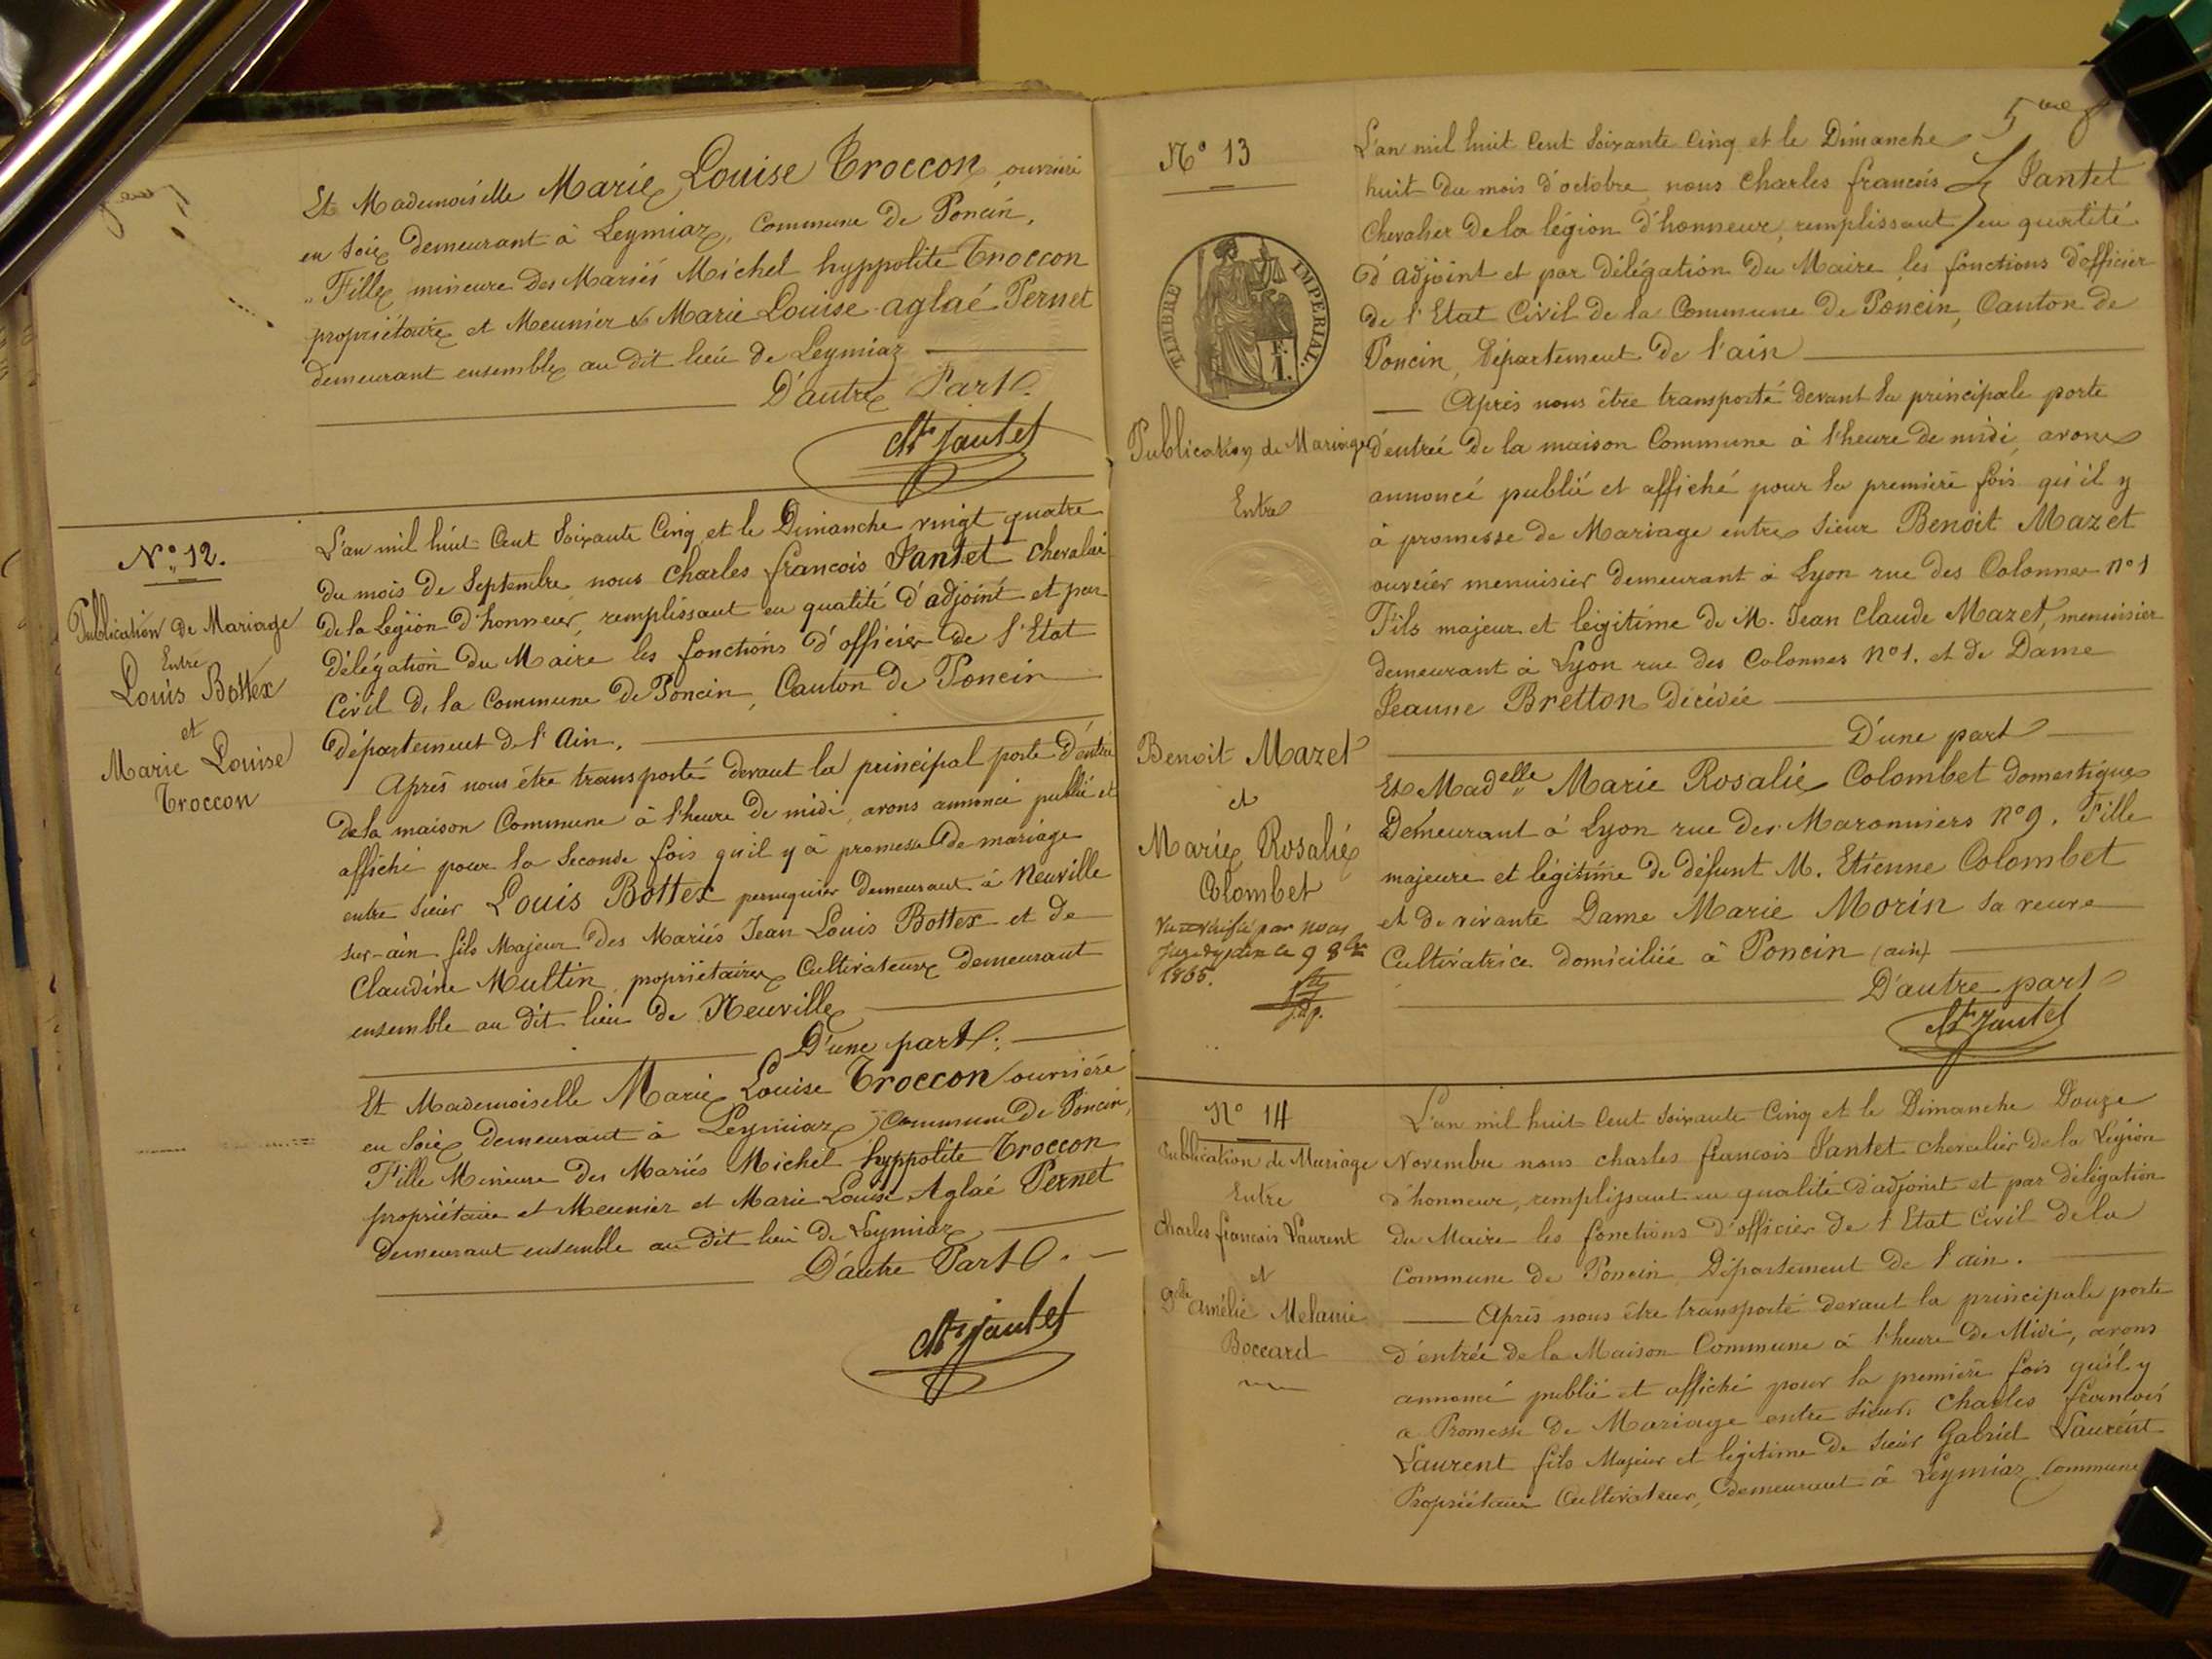 Et Mademoiselle Marie Louise Troccon, ouvrière
en soie demeurant à Leymiaz, Commune de Poncin,
Fille mineure des Mariés Michel hyppolite Troccon
propriétaire et Meunier & Marie Louise aglaé Pernet
demeurant ensemble au dit lieu de Leymiaz
D'autre Part.
Jantet
N° 12.
Publication de Mariage
Entre
Louis Bottex
et
Marie Louise
Troccon
L'an mil huit Cent Soixante Cinq et le Dimanche vingt quatre
du mois de Septembre nous Charles françois Jantet chevalier
de la Légion d'honneur, remplissant en qualité d'adjoint et par
Délégation du Maire les fonctions d'officier de l'Etat
Civil de la Commune de Poncin, Canton de Poncin
Département de l'Ain.
Après nous être transporté devant la principal porte d'entrée
de la maison Commune à l'heure de midi, avons annoncé publié et
affiché pour la Seconde fois qu'il y à promesse de mariage
entre sieur Louis Bottex perruquier demeurant à Neuville
sur-ain fils Majeur des Mariés Jean Louis Bottex et de
Claudine Multin, propriétaires Cultivateurs demeurant
ensemble au dit lieu de Neuville
D'une part.
Et Mademoiselle Marie Louise Troccon ouvrière
en Soie demeurant à Leymiaz, Commune de Poncin,
Fille Mineure des Mariés Michel hyppolite Troccon
propriétaire et Meunier et Marie Louise Aglaé Pernet
demeurant ensemble au dit lieu de Leymiaz
D'autre Part.
Jantet
5me f
N° 13
TIMBRE IMPÉRIAL.
F.
1.
Publication de Mariage
Entre
Benoit Mazet
et
Marie Rosalie
Colombet
Vu et vérifié par nous
Juge de paix le 9 8bre
1865.
L'an mil huit Cent Soixante Cinq et le Dimanche
huit du mois d'octobre nous Charles françois Jantet
Chevalier de la légion d'honneur, remplissant en qualité
d'adjoint et par Délégation du Maire les fonctions d'officier
de l'Etat Civil de la Commune de Poncin, Canton de
Poncin, Département de l'ain
Après nous être transporté devant la principale porte
d'entrée de la maison Commune à l'heure de midi avons
annoncé publié et affiché pour la première fois qu'il y
à promesse de Mariage entre sieur Benoit Mazet
ouvrier menuisier demeurant à Lyon rue des Colonnes n° 1
Fils majeur et légitime de M. Jean Claude Mazet, menuisier
demeurant à Lyon rue des Colonnes N° 1. et de Dame
Jeanne Bretton Décédée
D'une part
Et Madelle Marie Rosalie Colombet domestique
Demeurant à Lyon rue des Maronniers n° 9. Fille
majeure et légitime de défunt M. Etienne Colombet
et de vivante Dame Marie Morin sa veuve
Cultivatrice domiciliée à Poncin (ain)
D'autre part
Jantet
N° 14
Publication de Mariage
Entre
Charles françois Laurent
et
Delle Amélie Melanie
Boccard
L'an mil huit Cent Soixante Cinq et le Dimanche Douze
Novembre nous charles françois Jantet chevalier de la Légion
d'honneur, remplissant en qualité d'adjoint et par délégation
du Maire les fonctions d'officier de l'Etat Civil de la
Commune de Poncin Département de l'ain.
Après nous être transporté devant la principale porte
d'entrée de la Maison Commune à l'heure de Midi, avons
annoncé publié et affiché pour la première fois qu'il y
a Promesse de Mariage entre sieur Charles françois
Laurent fils Majeur et légitime de sieur Gabriel Laurent
Propriétaire Cultivateur, demeurant à Leymiaz Commune